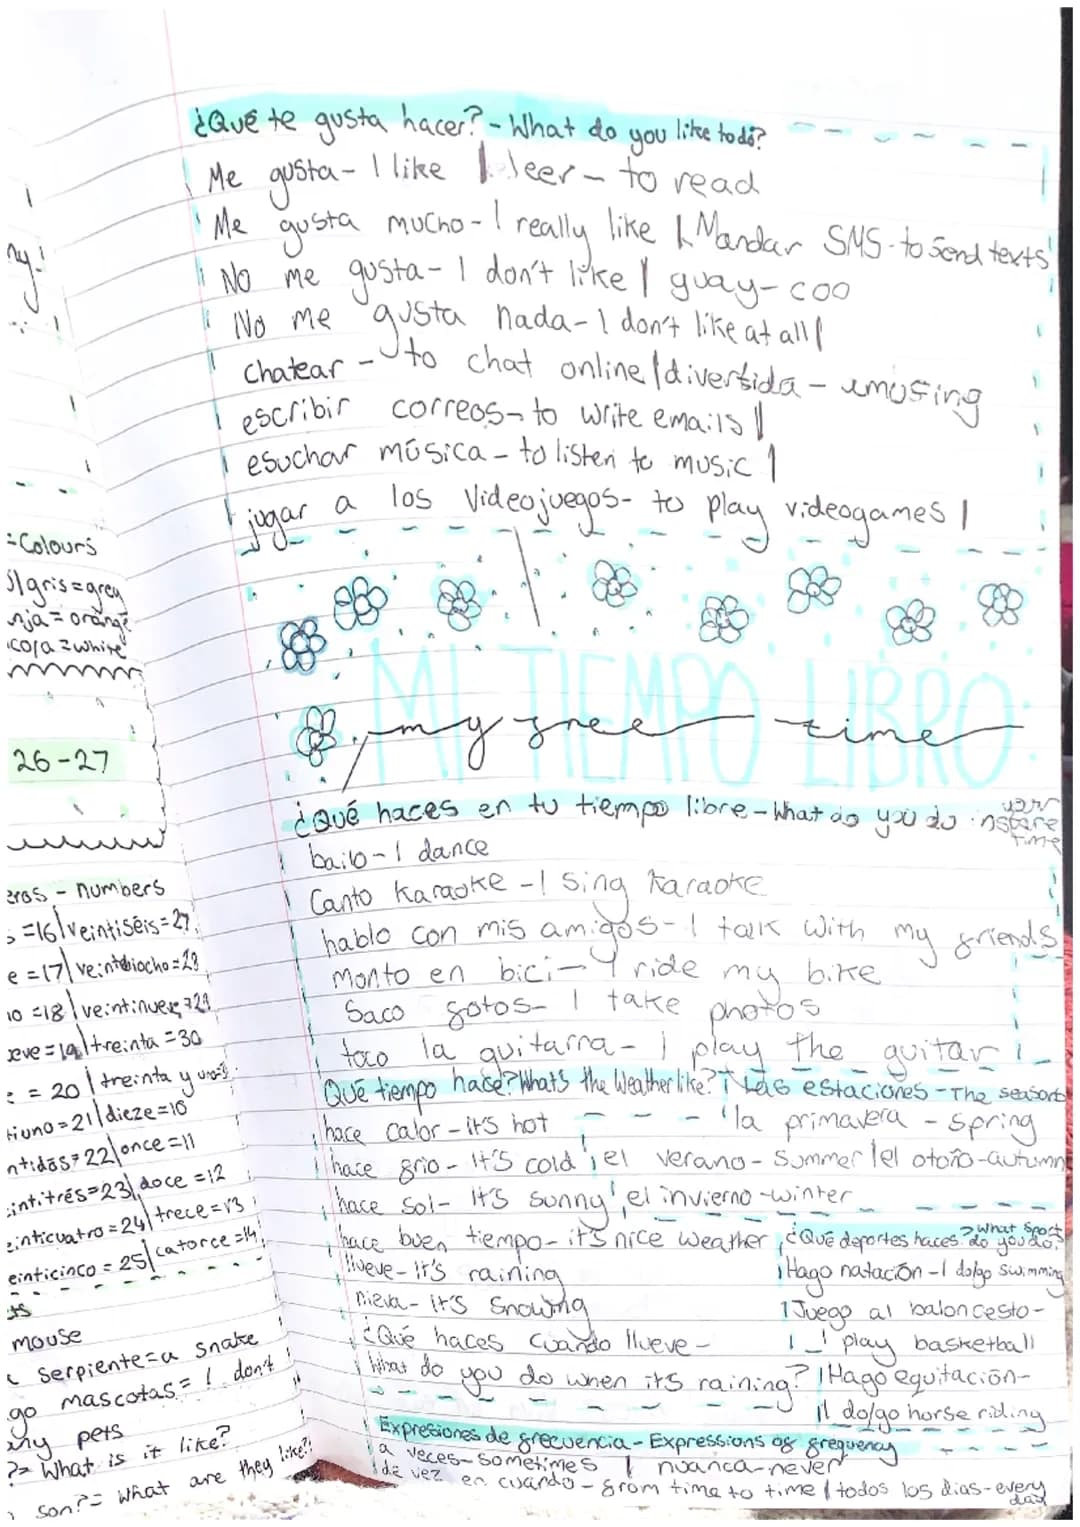 ¿Qué te gusta hacer? - What do you like to do?
Me gusta - I like | leer - to read
Me gusta mucho - I really like | Mandar SMS - to send texts
No me gusta - I don't like | guay - coo
No me gusta nada - I don't like at all |
chatear - to chat online | divertida - amusing
escribir correos - to write emails |
esuchar música - to listen to music |
jugar a los Videojuegos - to play videogames |
MI TIEMPO LIBRO:
my free time
¿Qué haces en tu tiempo libre - What do you do in your spare time
bailo - I dance
Canto Karaoke - I sing Karaoke
hablo con mis amigos - I talk with my friends
Monto en bici - I ride my bike
Saco fotos - I take photos
toco la guitarra - I play the guitar
Qué tiempo hace? What's the Weather like? | Las estaciones - The seasons
hace calor - it's hot | la primavera - Spring
hace frio - It's cold | el verano - Summer | el otoño - autumn
hace sol - It's sunny | el invierno - winter
hace buen tiempo - it's nice weather | ¿Qué deportes haces? - What sport do you do?
llueve - It's raining | Hago natación - I do/go swimming
nieva - it's snowing | Juego al baloncesto -
¿Qué haces cuando llueve - | I play basketball
What do you do when it's raining? | Hago equitación -
I do/go horse riding
Expresiones de frecuencia - Expressions of frequency
a veces - sometimes | nuanca - never
de vez en cuando - from time to time | todos los dias - every day
my!
= Colours
gris = grey
nja = orange
= white
26-27
eros - numbers
= 16 | veintiséis = 27
e = 17 | veintiocho = 28
io = 18 | veintinueve = 29
eve = 19 | treinta = 30
e = 20 | treinta y uno
tiuno = 21 | dieze = 10
ntidós = 22 | once = 11
intitrés = 23 | doce = 12
einticuatro = 24 | trece = 13
einticinco = 25 | catorce = 14
ts
mouse
serpiente = a snake
go mascotas = I don't
any pets
?= What is it like?
son? = What are they like?